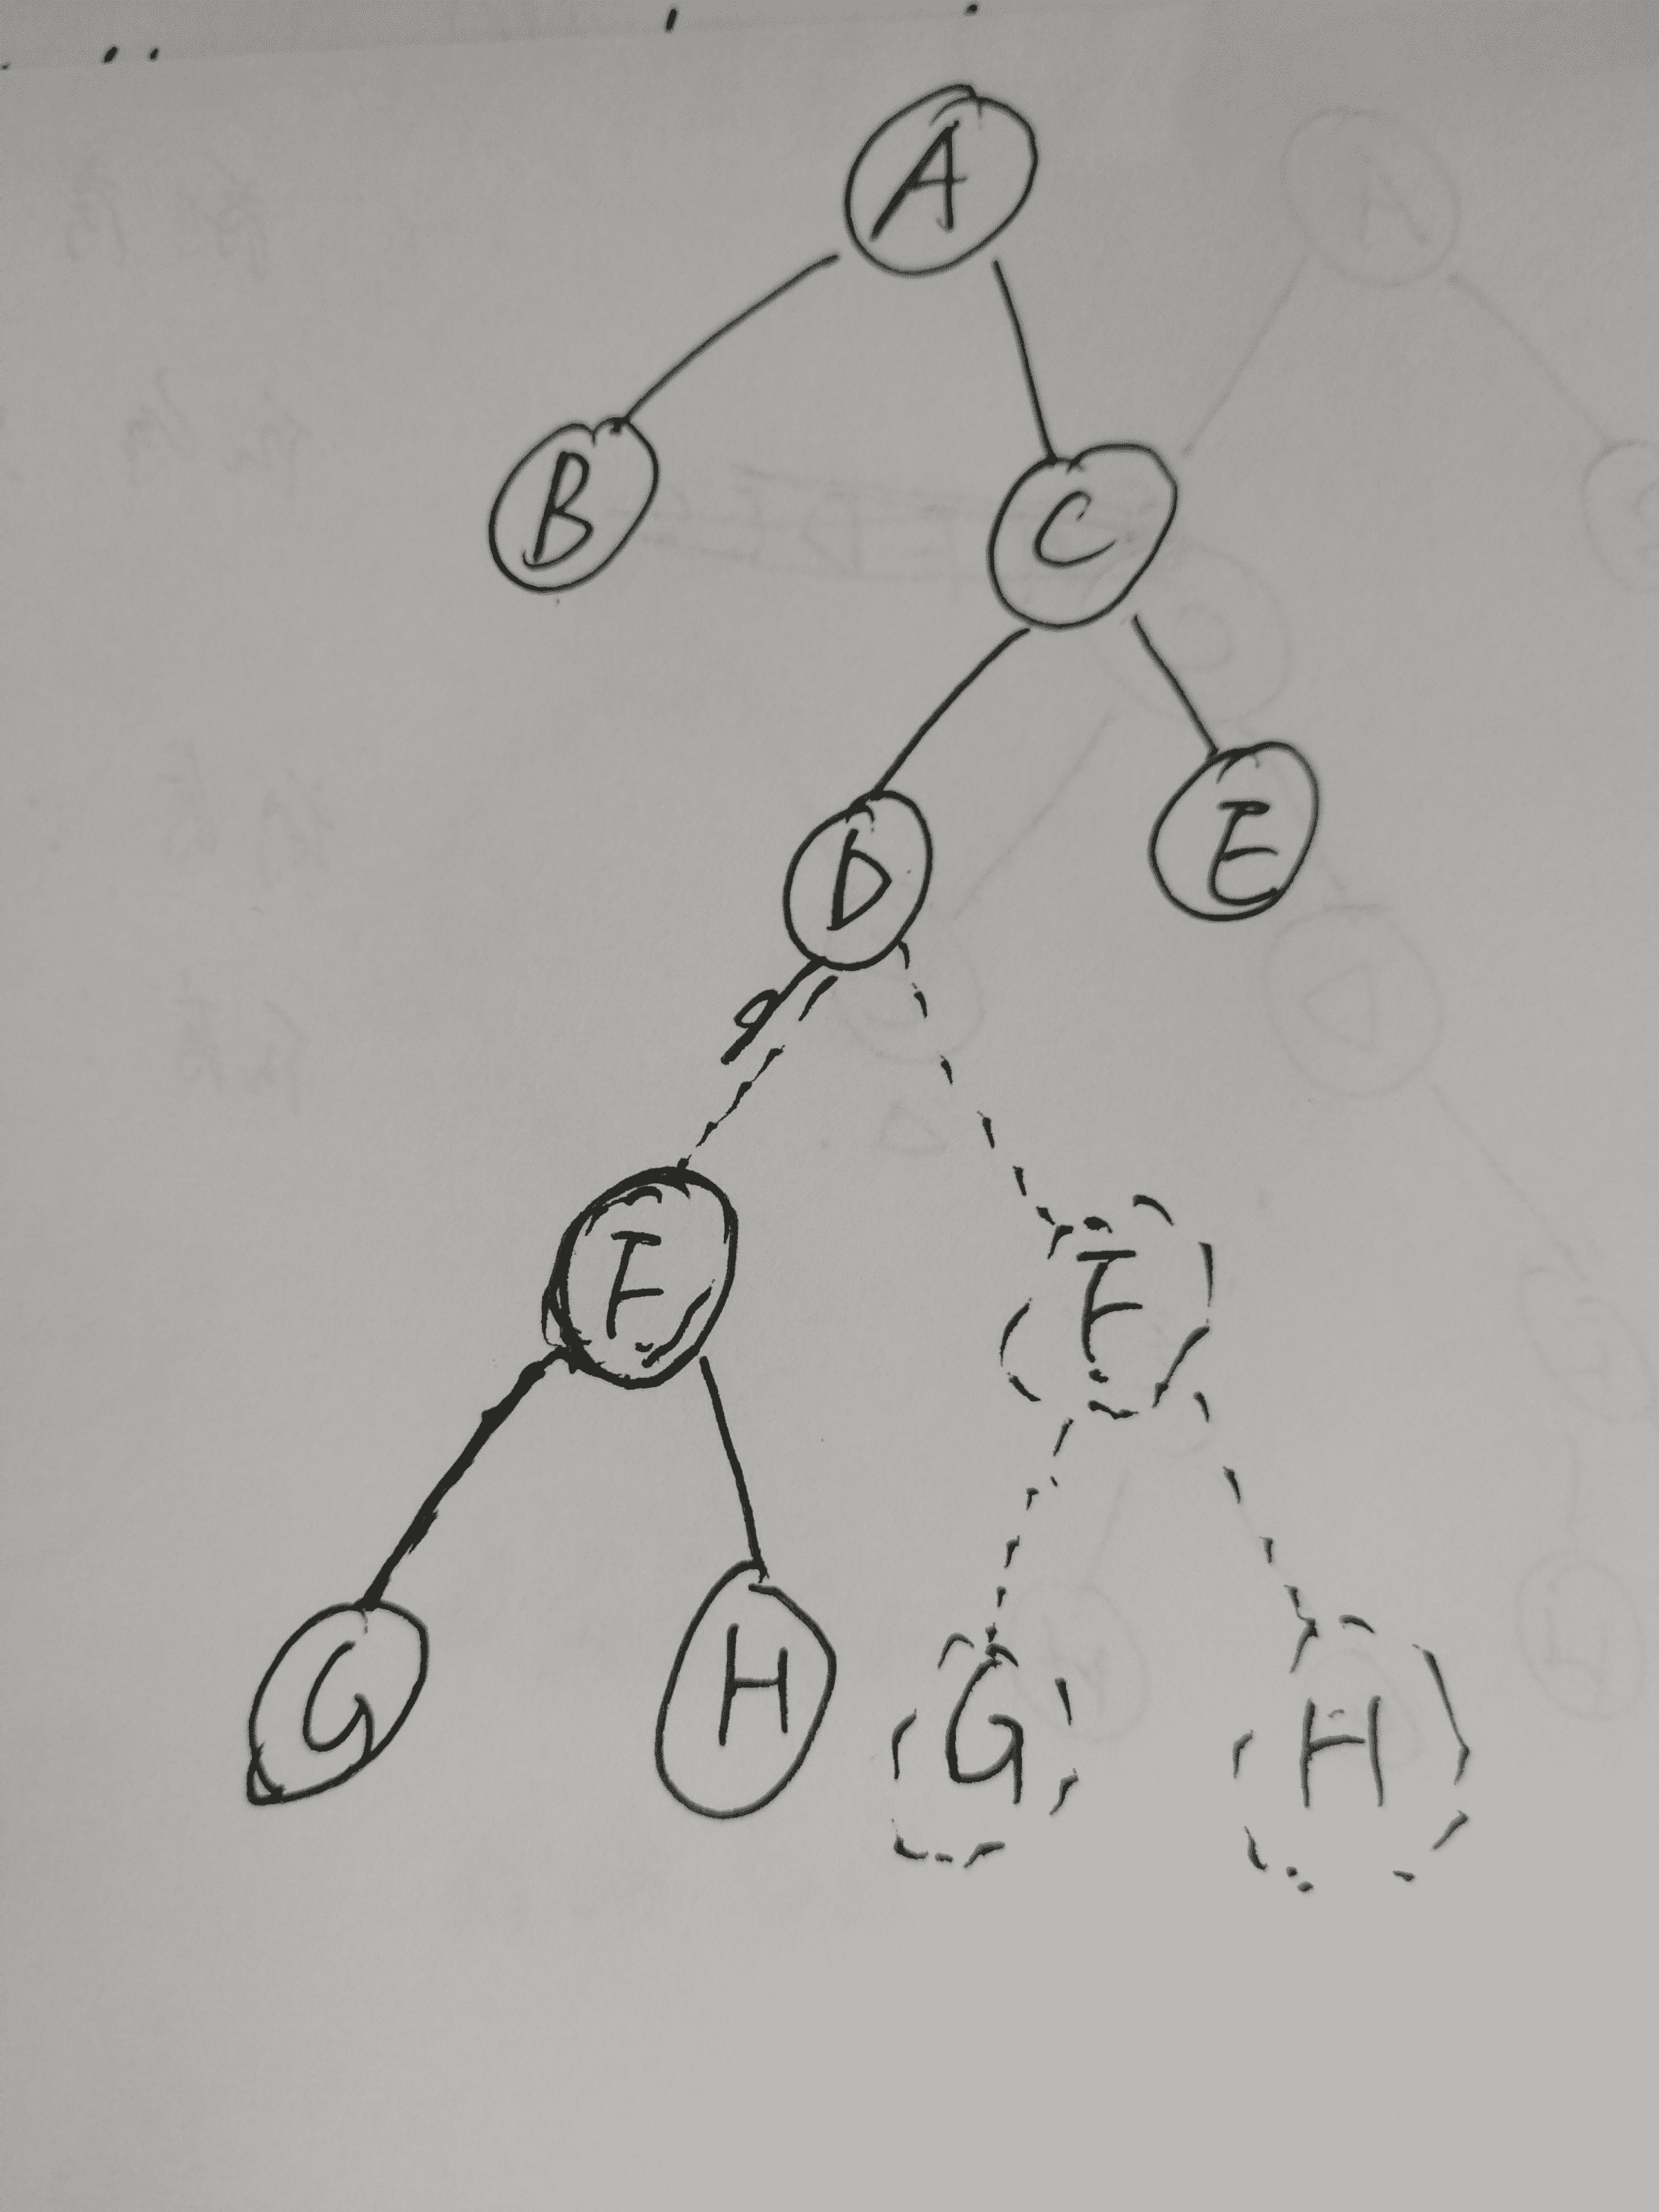 A
B C
D E
F F
G H G H